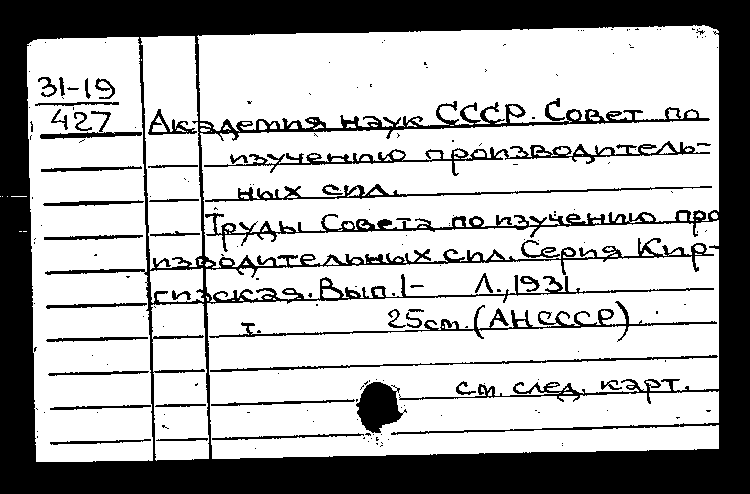 31-19
427
Академия наук СССР. Совет по
изучению производитель-
ных сил.
Труды Совета по изучению про
изводительных сил. Серия Кир-
гизская. Вып. 1- Л., 1931.
т. 25 cm. (АНСССР).
см. след. карт.